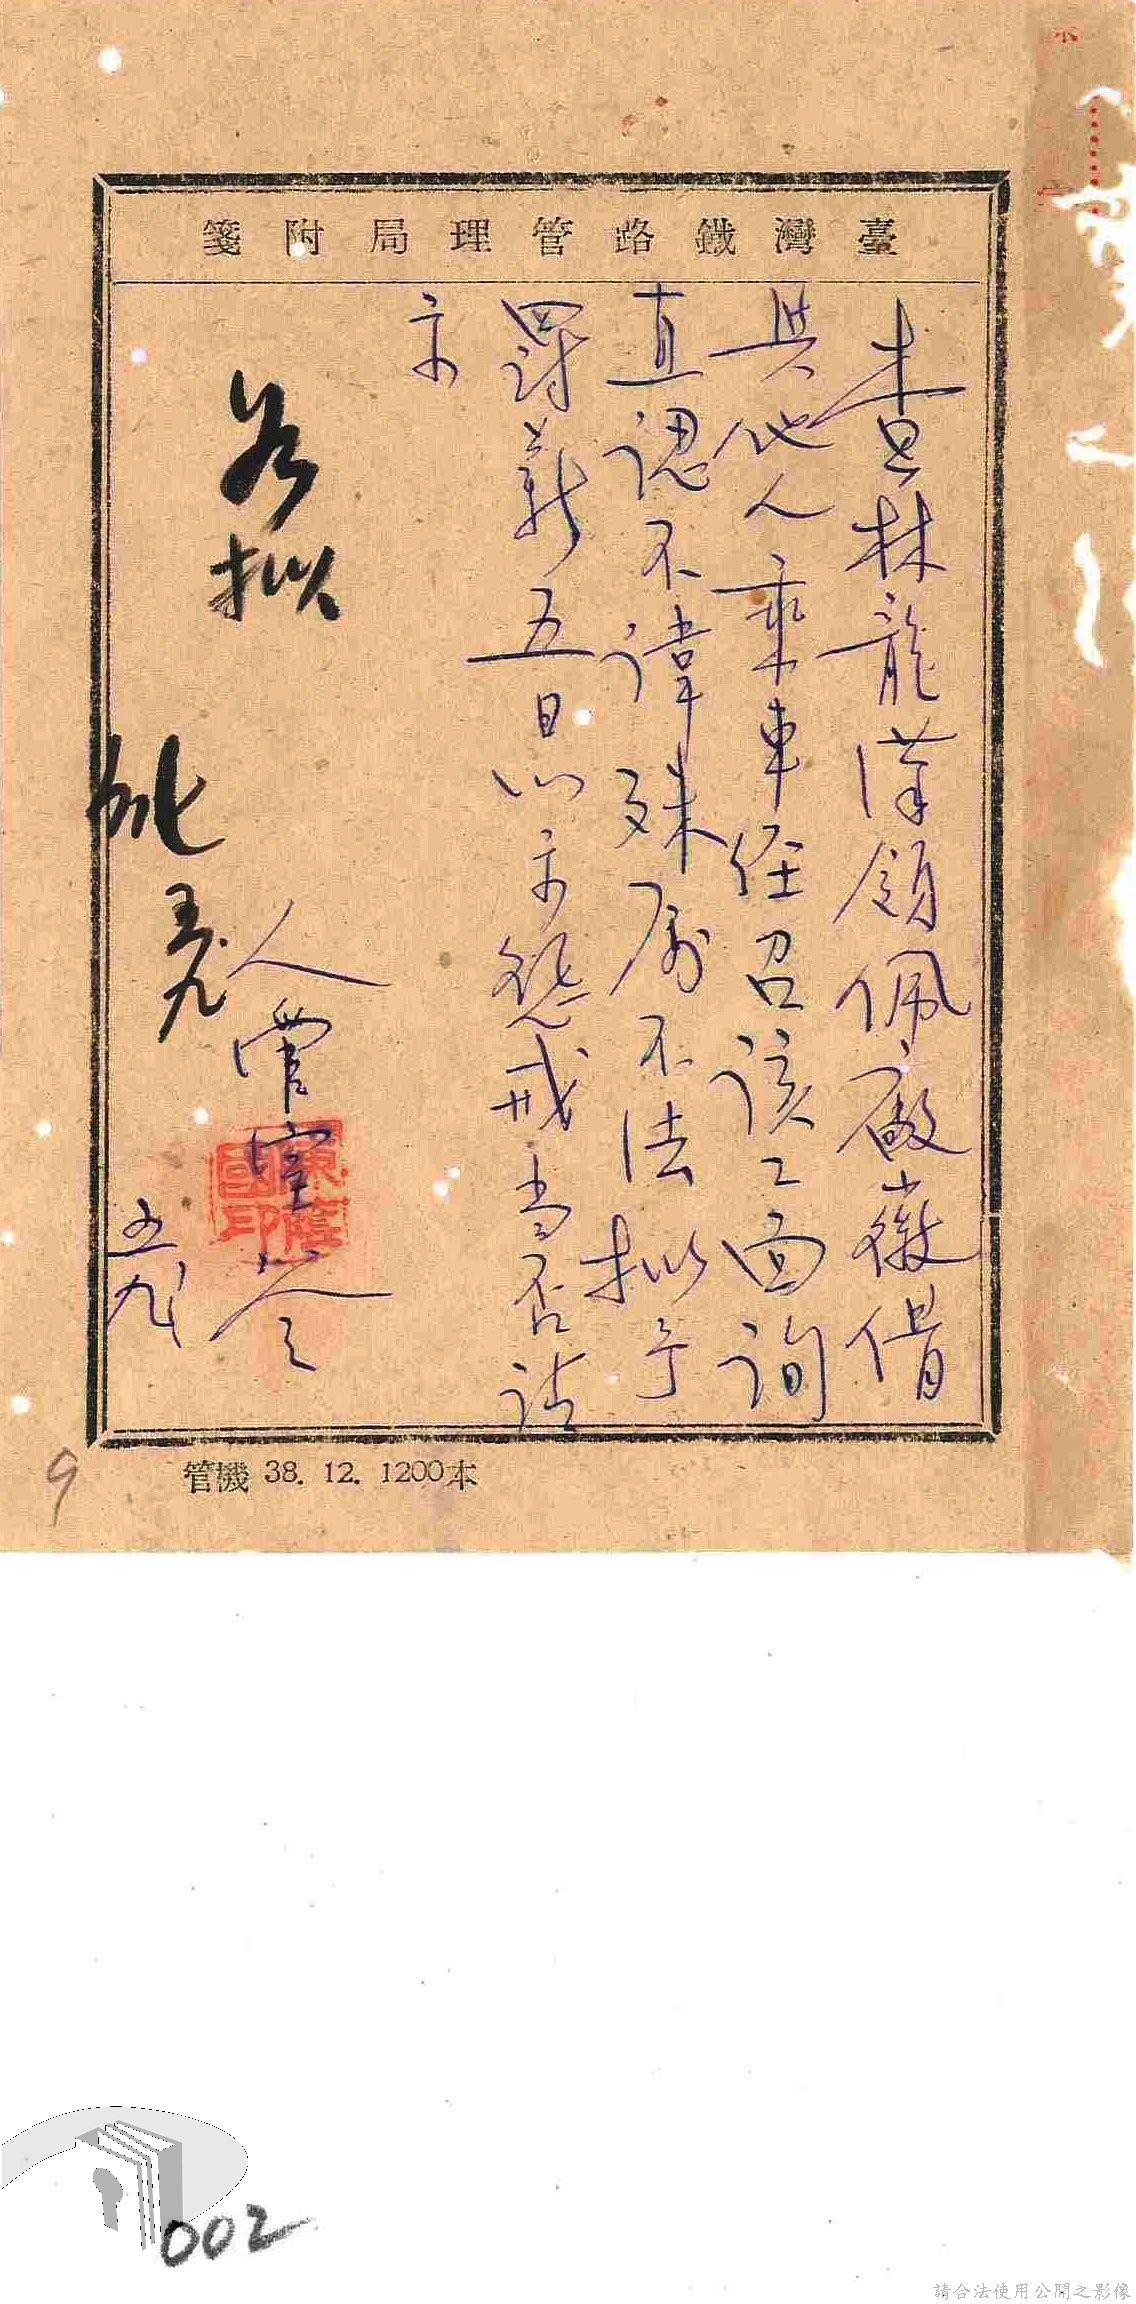 臺灣鐵路管理局附箋
查林龍漢領佩廠徽借
與他人乘車經召該工面詢
直認不諱殊屬不法拟予
罰薪五日以示懲戒当否請
示
如拟
五九
人管室簽
五九
管機 38. 12. 1200本
9
002
請合法使用公開之影像